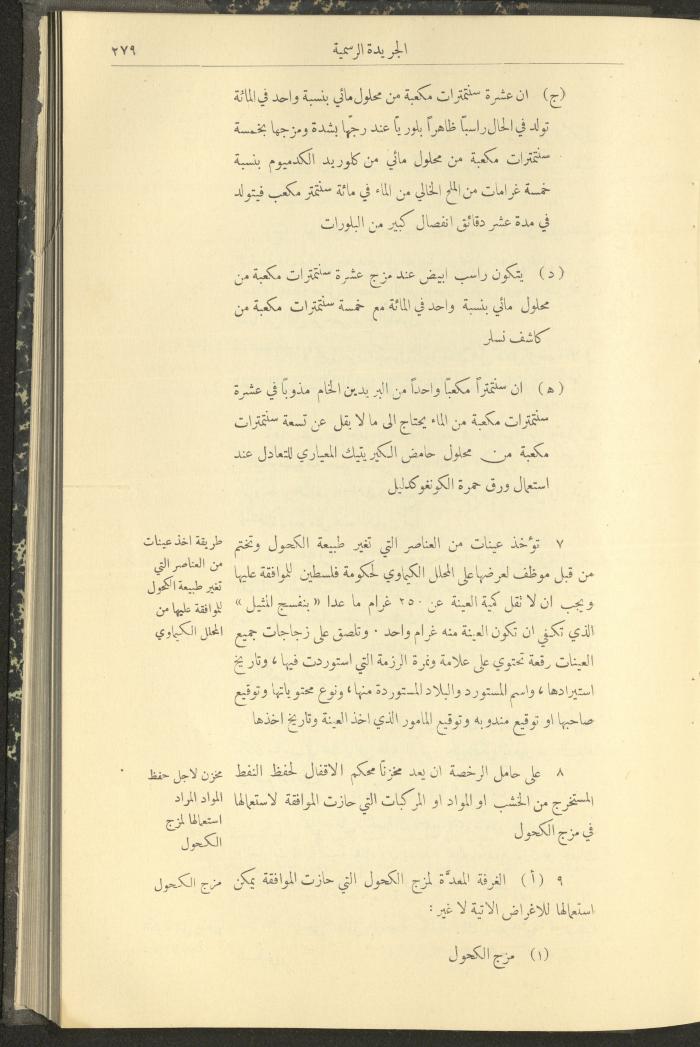 الجريدة الرسمية
٢٧٩
(ج) ان عشرة سنتمترات مكعبة من محلول مائي بنسبة واحد في المائة
تولد في الحال راسباً ظاهراً بلورياً عند رجّها بشدة ومزجها بخمسة
سنتمترات مكعبة من محلول مائي من كلوريد الكدميوم بنسبة
خمسة غرامات من الملح الخالي من الماء في مائة سنتمتر مكعب فيتولد
في مدة عشر دقائق انفصال كبير من البلورات
(د) يتكون راسب ابيض عند مزج عشرة سنتمترات مكعبة من
محلول مائي بنسبة واحد في المائة مع خمسة سنتمترات مكعبة من
كاشف نسلر
(ه) ان سنتمتراً مكعباً واحداً من البريدين الخام مذوباً في عشرة
سنتمترات مكعبة من الماء يحتاج الى ما لا يقل عن تسعة سنتمترات
مكعبة من محلول حامض الكبريتيك المعياري للتعادل عند
استعمال ورق حمرة الكونغو كدليل
٧ تؤخذ عينات من العناصر التي تغير طبيعة الكحول وتختم
من قبل موظف لعرضها على المحلل الكيماوي لحكومة فلسطين للموافقة عليها
ويجب ان لا تقل كمية العينة عن ٢٥٠ غرام ما عدا «بنفسج المثيل»
الذي تكفي ان تكون العينة منه غرام واحد . وتلصق على زجاجات جميع
العينات رقعة تحتوي على علامة ونمرة الرزمة التي استوردت فيها، وتاريخ
استيرادها، واسم المستورد والبلاد المستوردة منها، ونوع محتوياتها وتوقيع
صاحبها او توقيع مندوبه وتوقيع المامور الذي اخذ العينة وتاريخ اخذها
طريقة اخذ عينات
من العناصر التي
تغير طبيعة الكحول
للموافقة عليها من
المحلل الكيماوي
٨ على حامل الرخصة ان يعد مخزناً محكم الاقفال لحفظ النفط
المستخرج من الخشب او المواد او المركبات التي حازت الموافقة لاستعمالها
في مزج الكحول
مخزن لاجل حفظ
المواد المراد
استعمالها لمزج
الكحول
٩ (أ) الغرفة المعدَّة لمزج الكحول التي حازت الموافقة يمكن
استعمالها للاغراض الاتية لا غير :
مزج الكحول
(١) مزج الكحول